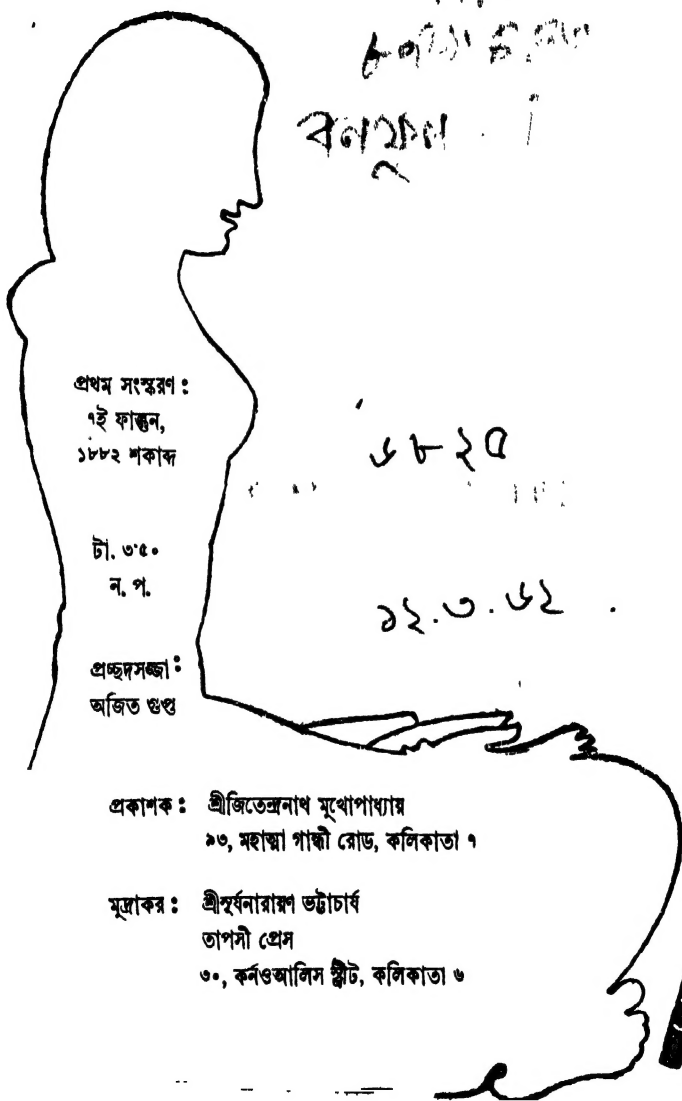 বনফুল
প্রথম সংস্করণ :
৭ই ফাল্গুন,
১৮৮২ শকাব্দ
৬৮২৫
টা. ৩·৫০
ন. প.
১২.৩.৬২
প্রচ্ছদসজ্জা :
অজিত গুপ্ত
প্রকাশক : শ্রীজিতেন্দ্রনাথ মুখোপাধ্যায়
৯৩, মহাত্মা গান্ধী রোড, কলিকাতা ৭
মুদ্রাকর : শ্রীসূর্যনারায়ণ ভট্টাচার্য
তাপসী প্রেস
৩০, কর্নওআলিস স্ট্রীট, কলিকাতা ৬